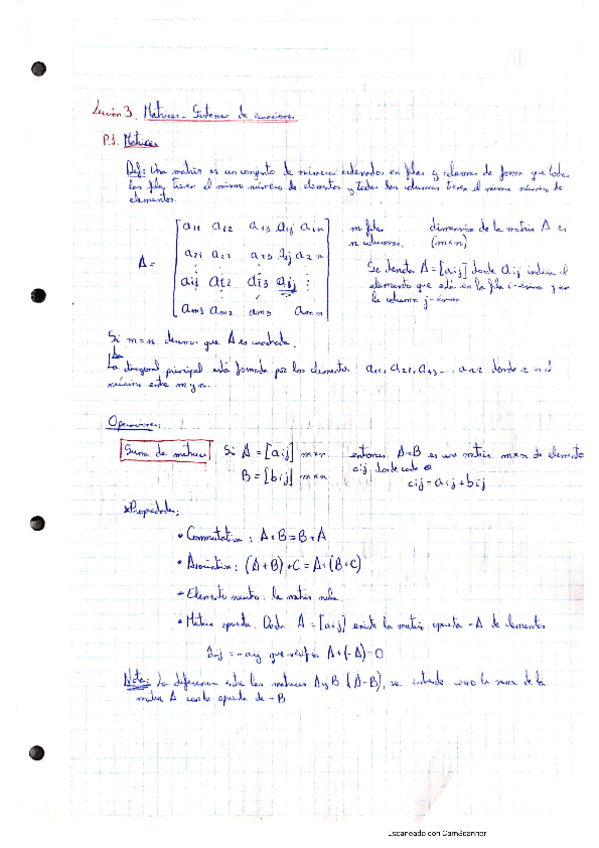 Lección 3. Matrices. Sistema de ecuaciones
P.1. Matrices
Def: Una matriz es un conjunto de números ordenados en filas y columnas de forma que todas
las filas tienen el mismo número de elementos y todas las columnas tienen el mismo número de
elementos.
a11 a12 a13 aij a1n m filas dimensión de la matriz A es
a21 a22 a23 aij a2n n columnas. (m×n)
A = ai1 ai2 ai3 aij Se denota A=[aij] donde aij indica el
elemento que está en la fila i-ésima y en
am1 am2 am3 amn la columna j-ésima
Si m=n decimos que A es cuadrada.
La diagonal principal está formada por los elementos a11, a22, a33... arr donde r es el
mínimo entre m y n.
Operaciones:
Suma de matrices Si A=[aij] m×n entonces A+B es una matriz m×n de elementos
B=[bij] m×n cij, donde cada
cij=aij+bij
*Propiedades:
• Conmutativa: A+B=B+A
• Asociativa: (A+B)+C=A+(B+C)
- Elemento neutro: la matriz nula.
• Matriz opuesta. Dada A=[aij] existe la matriz opuesta -A de elementos
=-aij que verifica A+(-A)=0
Nota: La diferencia entre las matrices A y B (A-B), se entiende como la suma de la
matriz A con la opuesta de -B
Escaneado con CamScanner